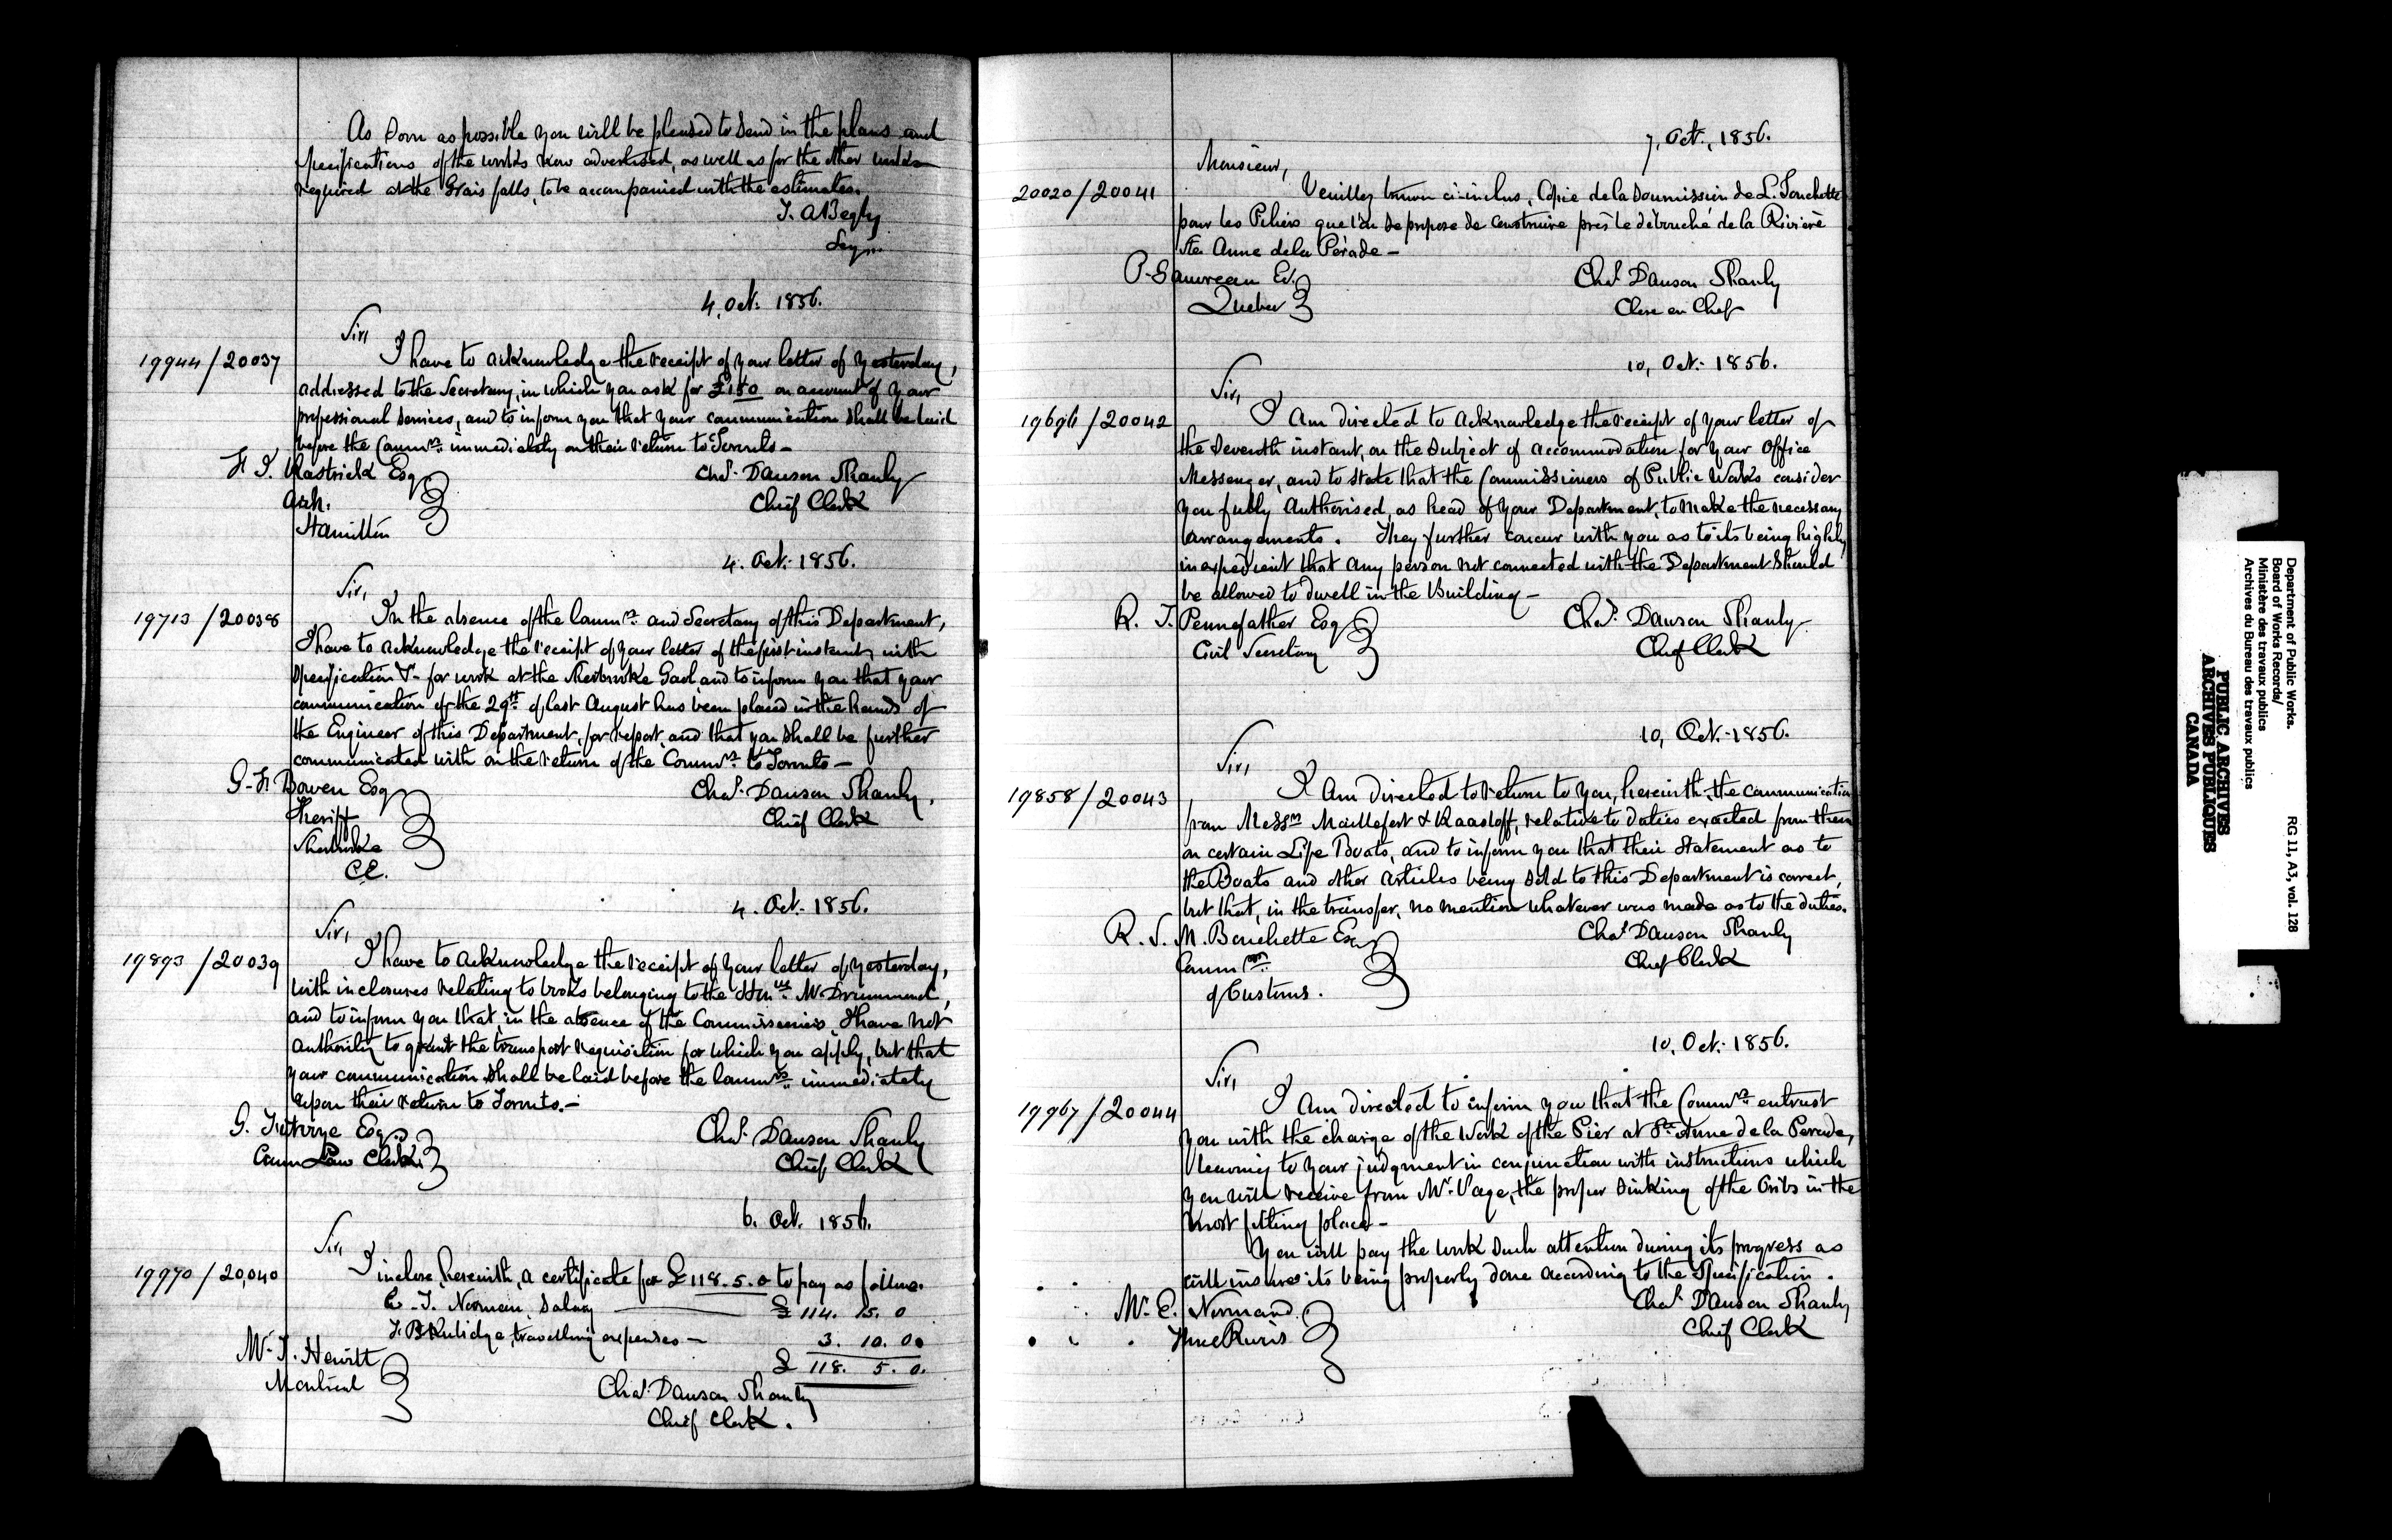 As soon as possible you will be pleased to send in the plans and
specifications of the works now advertised, as well as for the other works
required at the Grais falls, to be accompanied with the estimates.
T. A. Begly
Secy.
4, Oct. 1856.
Sir,
19944/20037
I have to acknowledge the receipt of your letter of yesterday,
addressed to the Secretary, in which you ask for £150 on account of your
professional services, and to inform you that your communication shall be laid
before the Commrs. immediately on their return to Toronto —
F. J. Rastrick Esq
Arch.
Hamilton
Chas. Dawson Shanly
Chief Clerk
4. Oct. 1856.
Sir,
19713/20038
In the absence of the Commrs. and Secretary of this Department,
I have to acknowledge the receipt of your letter of the first instant, with
Specification &c. for work at the Sherbrooke Gaol, and to inform you that your
communication of the 29th of last August has been placed in the hands of
the Engineer of this Department, for report, and that you shall be further
communicated with on the return of the Commrs. to Toronto —
G. F. Bowen Esq
Sheriff
Sherbrooke
C.E.
Chas. Dawson Shanly,
Chief Clerk
4. Oct. 1856.
Sir,
19893/20039
I have to acknowledge the receipt of your letter of yesterday,
with inclosures relating to books belonging to the Honble. Mr. Drummond,
and to inform you that, in the absence of the Commissioners, I have not
authority to grant the transport requisition for which you apply, but that
your communication shall be laid before the Commrs. immediately
upon their return to Toronto. —
G. Futvoye Esq.
Crown Law Clerk
Chas. Dawson Shanly
Chief Clerk
6. Oct. 1856.
Sir,
19970/20,040
I inclose, herewith, a certificate for £118.5.0 to pay as follows.
E. T. Norman, Salary — £ 114. 15. 0
travelling expenses — 3. 10. 00
£ 118. 5. 0.
Mr. J. Hewitt
Montreal
Chas. Dawson Shanly
Chief Clerk.
7, Oct., 1856.
Monsieur,
20020/20041
Veuillez trouver ci-inclus, Copie de la Soumission de L. Touchette
pour les Piliers que l'on se propose de construire près le débouché de la Rivière
Ste. Anne de la Pérade —
P. Gauvreau Er.
Quebec
Chas. Dawson Shanly
Clerc en Chef
10, Oct. 1856.
Sir,
19696/20042
I am directed to acknowledge the receipt of your letter of
the seventh instant, on the subject of accommodation for your Office
Messenger, and to state that the Commissioners of Public Works consider
you fully authorised, as head of your Department, to make the necessary
arrangements. They further concur with you as to its being highly
inexpedient that any person not connected with the Department should
be allowed to dwell in the Building —
R. T. Pennefather Esq
Civil Secretary
Chas. Dawson Shanly
Chief Clerk
10, Oct. 1856.
Sir,
19858/20043
I am directed to return to you, herewith, the communication
from Messrs. Maillefert & Raasloff, relative to duties exacted from them
on certain Life Boats, and to inform you that their statement as to
the Boats and other articles being sold to this Department is correct,
but that, in the transfer, no mention whatever was made as to the duties.
R. S. M. Bouchette Esq
Commr.
of Customs.
Chas. Dawson Shanly
Chief Clerk
10, Oct. 1856.
Sir,
19967/20044
I am directed to inform you that the Commrs. entrust
you with the charge of the Work of the Pier at Ste. Anne de la Perade,
leaving to your judgment in conjunction with instructions which
you will receive from Mr. Page, the proper sinking of the Cribs in the
most fitting place —
You will pay the work such attention during its progress as
will insure its being properly done according to the Specification.
Mr. E. Normand
Three Rivers
Chas. Dawson Shanly
Chief Clerk
Department of Public Works.
Board of Works Records/
Ministère des travaux publics
Archives du Bureau des travaux publics
RG 11, A3, vol. 128
PUBLIC ARCHIVES
ARCHIVES PUBLIQUES
CANADA